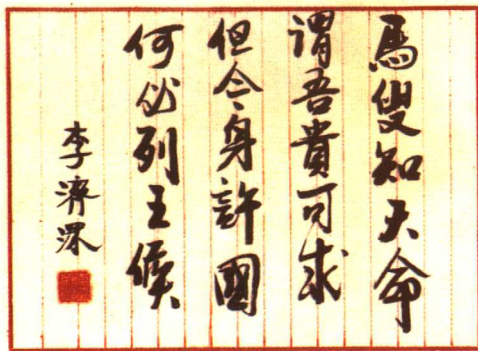 馬叟知天命
謂吾貴可求
但令身許國
何必列王侯
李濟深